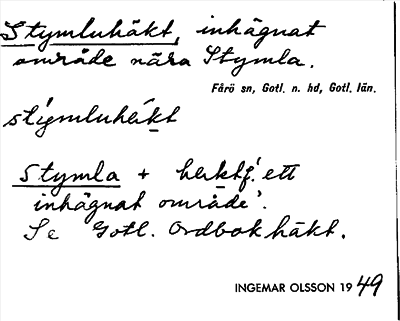 Stymluhäkt, inhägnat
område nära Stymla.
Fårö sn, Gotl. n. hd, Gotl. län.
Stymla +
inhägnat område'.
Se Gotl. Ordbok häkt.
INGEMAR OLSSON 1949